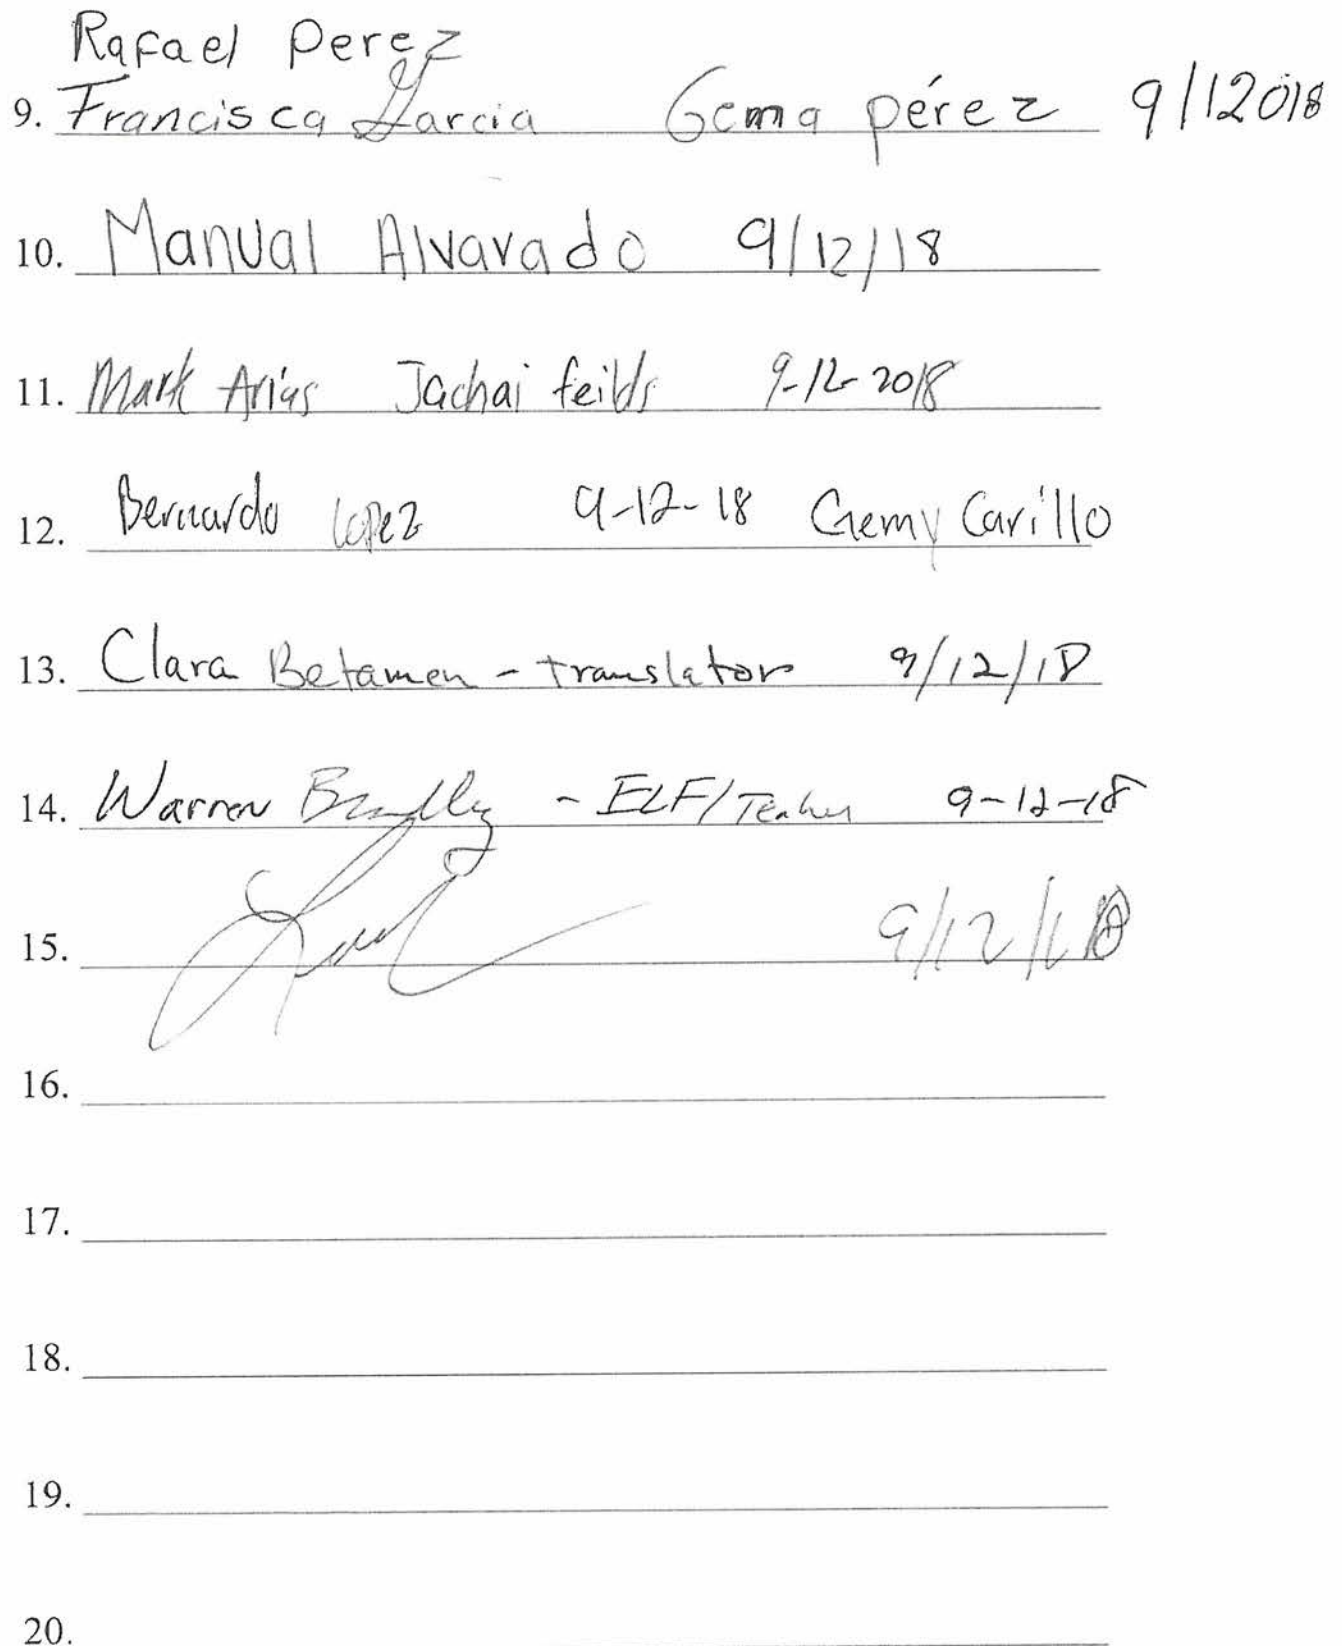 Rafael Perez
9. Francisca Garcia Gema pérez 9/12018
10. Manual Alvarado 9/12/18
11. Mark Arias Jachai feilds 9-12-2018
12. Bernardo Lopez 9-12-18 Gemy Carillo
13. Clara Betamen - translator 9/12/18
14. Warren - ELF/Teacher 9-12-18
15. 9/12/18
16.
17.
18.
19.
20.